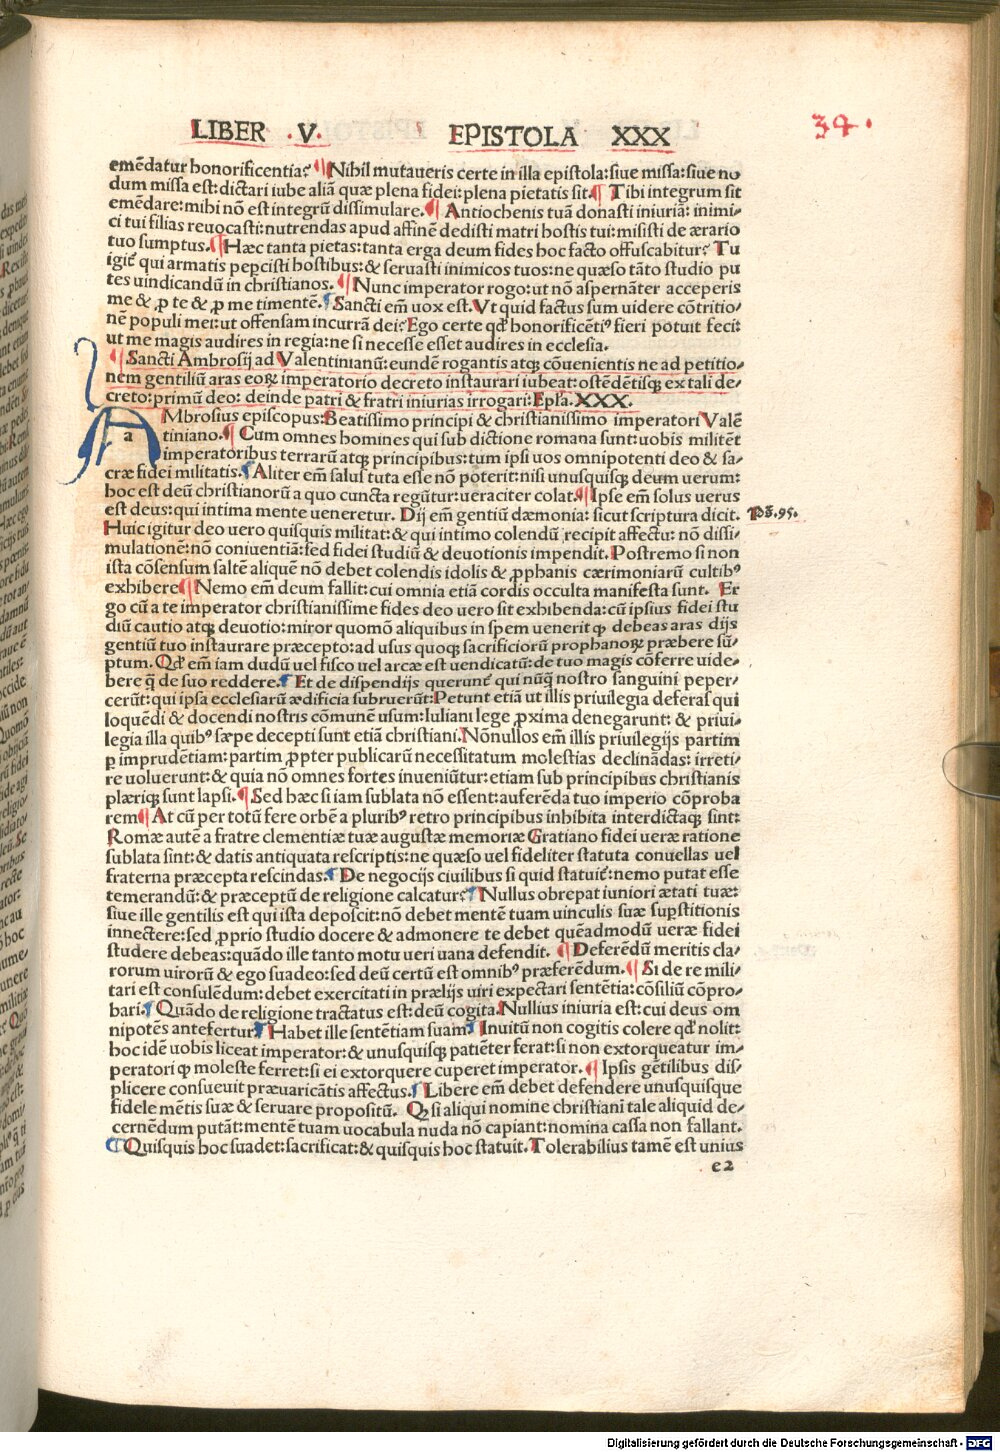 LIBER .V. EPISTOLA XXX
34.
emēdatur honorificentia? Nihil mutaueris certe in illa epistola: siue missa: siue nō
dum missa est: dictari iube aliā quæ plena fidei: plena pietatis sit. Tibi integrum sit
emēdare: mihi nō est integrū dissimulare. Antiochenis tuā donasti iniuriā: inimi-
ci tui filias reuocasti: nutrendas apud affinē dedisti matri hostis tui: misisti de ærario
tuo sumptus. Hæc tanta pietas: tanta erga deum fides hoc facto offuscabitur? Tu
igit̃ qui armatis peꝑcisti hostibus: & seruasti inimicos tuos: ne quæso tāto studio pu
tes uindicandū in christianos. Nunc imperator rogo: ut nō aspernāter acceperis
me & ꝓ te & ꝓ me timentē. Sancti em̄ uox est. Vt quid factus sum uidere cōtritio-
nē populi mei: ut offensam incurrā dei? Ego certe qđ honorificētiꝰ fieri potuit feci:
ut me magis audires in regia: ne si necesse esset audires in ecclesia.
Sancti Ambrosij ad Valentinianū: eundē rogantis atqꝫ cōuenientis ne ad petitio-
nem gentiliū aras eoꝝ imperatorio decreto instaurari iubeat: ostēdētisqꝫ ex tali de-
creto: primū deo: deinde patri & fratri iniurias irrogari: Epła. XXX.
a
AMbrosius episcopus: Beatissimo principi & christianissimo imperatori Valē
tiniano. Cum omnes homines qui sub dictione romana sunt: uobis militēt
imperatoribus terrarū atqꝫ principibus: tum ipsi uos omnipotenti deo & sa-
cræ fidei militatis. Aliter em̄ salus tuta esse nō poterit: nisi unusquisqꝫ deum uerum:
hoc est deū christianorū a quo cuncta regūtur: ueraciter colat. Ipse em̄ solus uerus
est deus: qui intima mente ueneretur. Dij em̄ gentiū dæmonia: sicut scriptura dicit.
Ps. 95.
Huic igitur deo uero quisquis militat: & qui intimo colendū recipit affectu: nō dissi-
mulationē: nō coniuentiā: sed fidei studiū & deuotionis impendit. Postremo si non
ista cōsensum saltē aliquē nō debet colendis idolis & ꝓphanis cærimoniarū cultibꝰ
exhibere Nemo em̄ deum fallit: cui omnia etiā cordis occulta manifesta sunt. Er
go cū a te imperator christianissime fides deo uero sit exhibenda: cū ipsius fidei stu
diū cautio atqꝫ deuotio: miror quomō aliquibus in spem uenerit ꝙ debeas aras dijs
gentiū tuo instaurare præcepto: ad usus quoqꝫ sacrificiorū prophanoꝝ præbere sū-
ptum. Qđ em̄ iam dudū uel fisco uel arcæ est uendicatū: de tuo magis cōferre uide-
bere q̄ de suo reddere. Et de dispendijs querunt̃ qui nūq̄ nostro sanguini peper-
cerūt: qui ipsa ecclesiarū ædificia subruerūt: Petunt etiā ut illis priuilegia deferas qui
loquēdi & docendi nostris cōmunē usum: Iuliani lege ꝓxima denegarunt: & priui-
legia illa quibꝰ sæpe decepti sunt etiā christiani. Nōnullos em̄ illis priuilegijs partim
ꝑ imprudētiam: partim ꝓpter publicarū necessitatum molestias declinādas: irreti-
re uoluerunt: & quia nō omnes fortes inueniūtur: etiam sub principibus christianis
plæriqꝫ sunt lapsi. Sed hæc si iam sublata nō essent: auferēda tuo imperio cōproba
rem At cū per totū fere orbē a pluribꝰ retro principibus inhibita interdictaqꝫ sint:
Romæ autē a fratre clementiæ tuæ augustæ memoriæ Gratiano fidei ueræ ratione
sublata sint: & datis antiquata rescriptis: ne quæso uel fideliter statuta conuellas uel
fraterna præcepta rescindas. De negocijs ciuilibus si quid statuit̃: nemo putat esse
temerandū: & præceptū de religione calcatur? Nullus obrepat iuniori ætati tuæ:
siue ille gentilis est qui ista deposcit: nō debet mentē tuam uinculis suæ suꝑstitionis
innectere: sed ꝓprio studio docere & admonere te debet quēadmodū ueræ fidei
studere debeas: quādo ille tanto motu ueri uana defendit. Deferēdū meritis cla-
rorum uirorū & ego suadeo: sed deū certū est omnibꝰ præferēdum. Si de re mili-
tari est consulēdum: debet exercitati in prælijs uiri expectari sentētia: cōsiliū cōpro-
bari. Quādo de religione tractatus est: deū cogita. Nullius iniuria est: cui deus om
nipotēs antefertur. Habet ille sentētiam suam. Inuitū non cogitis colere qđ nolit:
hoc idē uobis liceat imperator: & unusquisqꝫ patiēter ferat: si non extorqueatur im-
peratori ꝙ moleste ferret: si ei extorquere cuperet imperator. Ipsis gētilibus dis-
plicere consueuit præuaricātis affectus. Libere em̄ debet defendere unusquisque
fidele mētis suæ & seruare propositū. Qꝫ si aliqui nomine christiani tale aliquid de-
cernēdum putāt: mentē tuam uocabula nuda nō capiant: nomina cassa non fallant.
Quisquis hoc suadet: sacrificat: & quisquis hoc statuit. Tolerabilius tamē est unius
e2
Digitalisierung gefördert durch die Deutsche Forschungsgemeinschaft - DFG